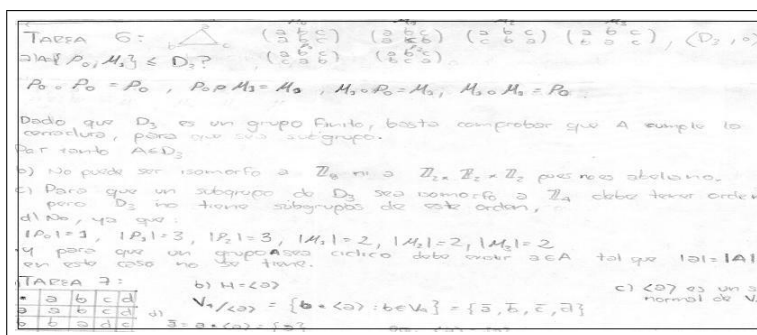 TAREA 6: a b c (a b c / a b c) (a b c / a c b) (a b c / c b a) (a b c / b a c), (D₃, ∘)
a) A={P₀, M₃} ≤ D₃?
P₀∘P₀ = P₀, P₀∘M₃ = M₃, M₃∘P₀ = M₃, M₃∘M₃ = P₀
Dado que D₃ es un grupo finito, basta comprobar que A cumple la
cerradura, para que sea subgrupo.
Por tanto A≤D₃
b) No puede ser isomorfo a ni a Z₂ × Z₂ × Z₂ pues no es abeliano.
c) Para que un subgrupo de D₃ sea isomorfo a Z₄ debe tener orden
pero D₃ no tiene subgrupos de este orden,
d) No, ya que:
|P₀|=1, |P₁|=3, |P₂|=3, |M₁|=2, |M₂|=2, |M₃|=2
Y para que un grupo A sea cíclico debe existir a∈A tal que |a|=|A|
en este caso no se tiene.
TAREA 7: b) H=<a> c) <a> es un s
∘ a b c d V₄/<a> = {b∘<a> : b∈V₄} = {ā, b̄, c̄, d̄} normal de V
a a b c d
b b a d c ā = a∘<a> = {a}